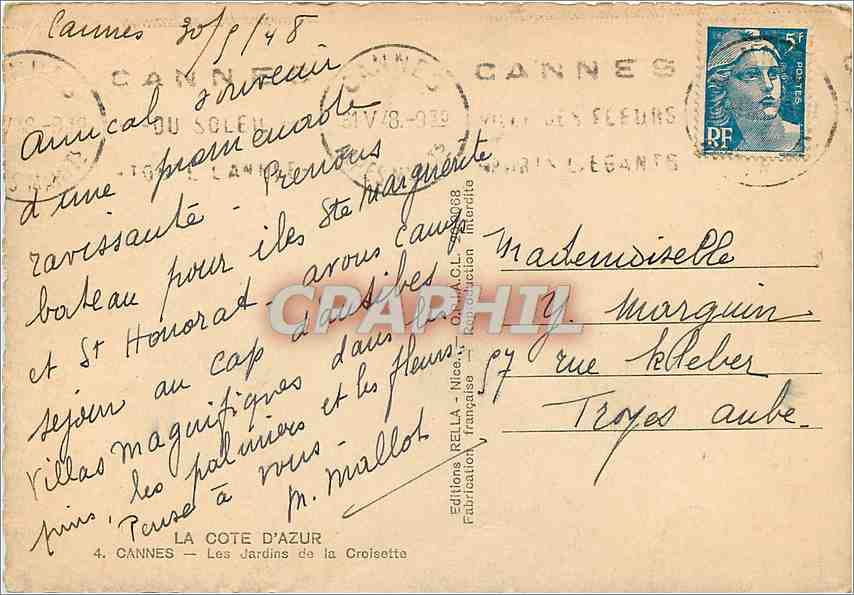 Cannes 30/5/48
Amical souvenir
d'une promenade
ravissante - Prenons
bateau pour iles Ste Marguerite
et St Honorat - avons
séjour au cap d'antibes
Villas magnifiques dans les
pins, les palmiers et les fleurs
Pense à vous -
M. Mallot
LA COTE D'AZUR
4. CANNES — Les Jardins de la Croisette
CANNES
DU SOLEIL
TOUTE L'ANNEE
CANNES
31 V 48.-9 30
CANNES
VILLE DES FLEURS
SPORTS ELEGANTS
5F
POSTES
RF
CPARHIL
Editions RELLA - Nice.
Fabrication française - Reproduction Interdite
Mademoiselle
Y. Marguin
97 rue Kleber
Troyes Aube.